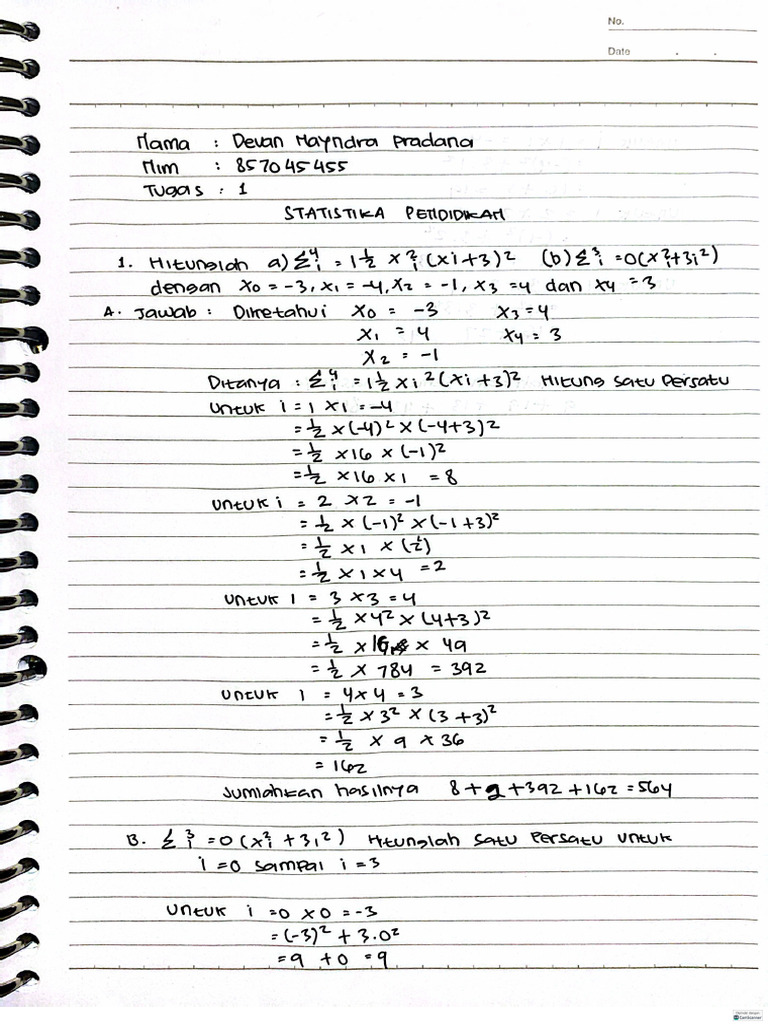 No.
Date
Nama : Devan Mayndra Pradana
Nim : 857045455
Tugas : 1
STATISTIKA PENDIDIKAN
1. Hitunglah a) Σ⁴ᵢ = 1 ½ x²ᵢ (xi+3)² (b) Σ³ᵢ = 0(x²ᵢ+3i²)
dengan x0 = -3, x1 = -4, x2 = -1, x3 = 4 dan x4 = 3
A. Jawab : Diketahui x0 = -3 x3 = 4
x1 = 4 x4 = 3
x2 = -1
Ditanya : Σ⁴ᵢ = 1 ½ xi² (xi+3)² Hitung satu persatu
untuk i = 1 x1 = -4
= ½ x (-4)² x (-4+3)²
= ½ x 16 x (-1)²
= ½ x 16 x 1 = 8
untuk i = 2 x2 = -1
= ½ x (-1)² x (-1+3)²
= ½ x 1 x
= ½ x 1 x 4 = 2
untuk i = 3 x3 = 4
= ½ x 4² x (4+3)²
= ½ x 16 x 49
= ½ x 784 = 392
untuk i = 4 x4 = 3
= ½ x 3² x (3+3)²
= ½ x 9 x 36
= 162
Jumlahkan hasilnya 8+2+392+162 = 564
B. Σ³ᵢ = 0 (x²ᵢ + 3i²) Hitunglah satu persatu untuk
i = 0 sampai i = 3
untuk i = 0 x0 = -3
= (-3)² + 3.0²
= 9 + 0 = 9
CamScanner